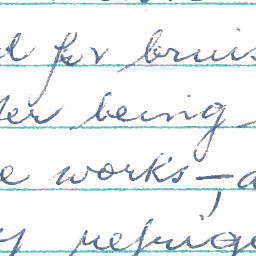 for bruis
being
works –
refrige